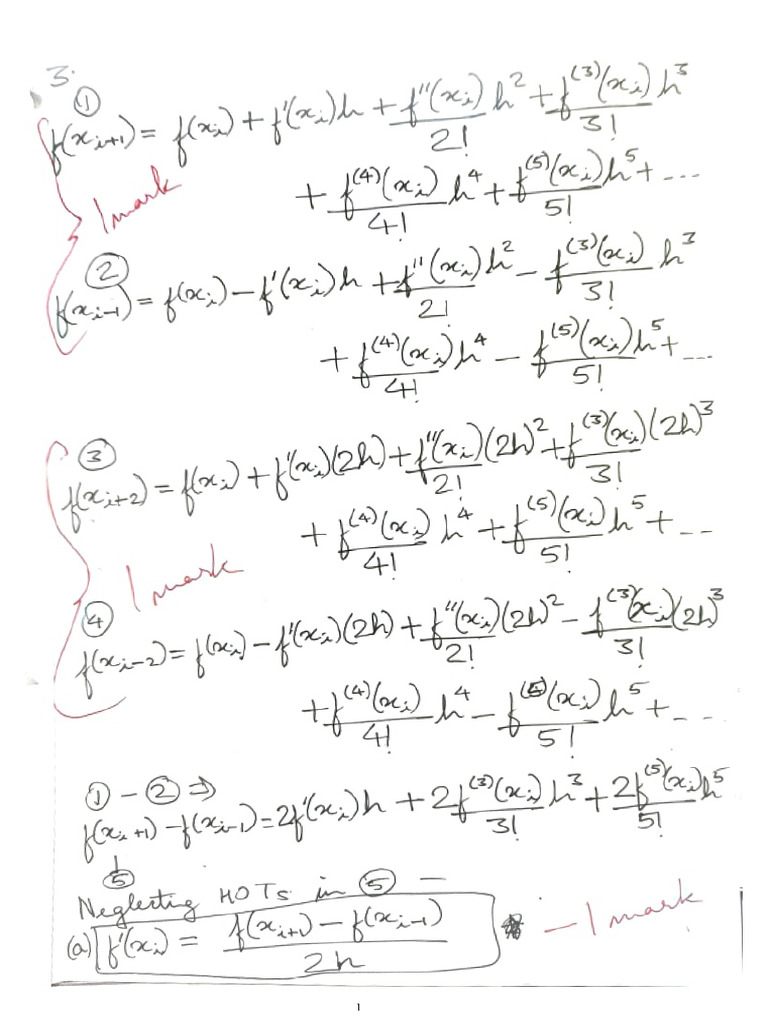 3.
①
f(xᵢ₊₁) = f(xᵢ) + f'(xᵢ)h + f''(xᵢ)/2! h² + f⁽³⁾(xᵢ)/3! h³
+ f⁽⁴⁾(xᵢ)/4! h⁴ + f⁽⁵⁾(xᵢ)/5! h⁵ + ...
1 mark
②
f(xᵢ₋₁) = f(xᵢ) - f'(xᵢ)h + f''(xᵢ)/2! h² - f⁽³⁾(xᵢ)/3! h³
+ f⁽⁴⁾(xᵢ)/4! h⁴ - f⁽⁵⁾(xᵢ)/5! h⁵ + ...
③
f(xᵢ₊₂) = f(xᵢ) + f'(xᵢ)(2h) + f''(xᵢ)/2! (2h)² + f⁽³⁾(xᵢ)/3! (2h)³
+ f⁽⁴⁾(xᵢ)/4! h⁴ + f⁽⁵⁾(xᵢ)/5! h⁵ + ...
1 mark
④
f(xᵢ₋₂) = f(xᵢ) - f'(xᵢ)(2h) + f''(xᵢ)/2! (2h)² - f⁽³⁾(xᵢ)/3! (2h)³
+ f⁽⁴⁾(xᵢ)/4! h⁴ - f⁽⁵⁾(xᵢ)/5! h⁵ + ...
① - ② ⇒
f(xᵢ₊₁) - f(xᵢ₋₁) = 2f'(xᵢ)h + 2f⁽³⁾(xᵢ)/3! h³ + 2f⁽⁵⁾(xᵢ)/5! h⁵
↓
⑤
Neglecting HOTs in ⑤ —
(a) f'(xᵢ) = (f(xᵢ₊₁) - f(xᵢ₋₁))/2h — 1 mark
1